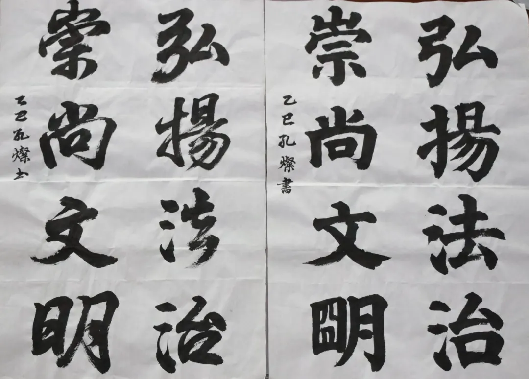 弘揚法治
崇尚文明
乙巳孔燦書
弘揚法治
崇尚文明
乙巳孔燦书